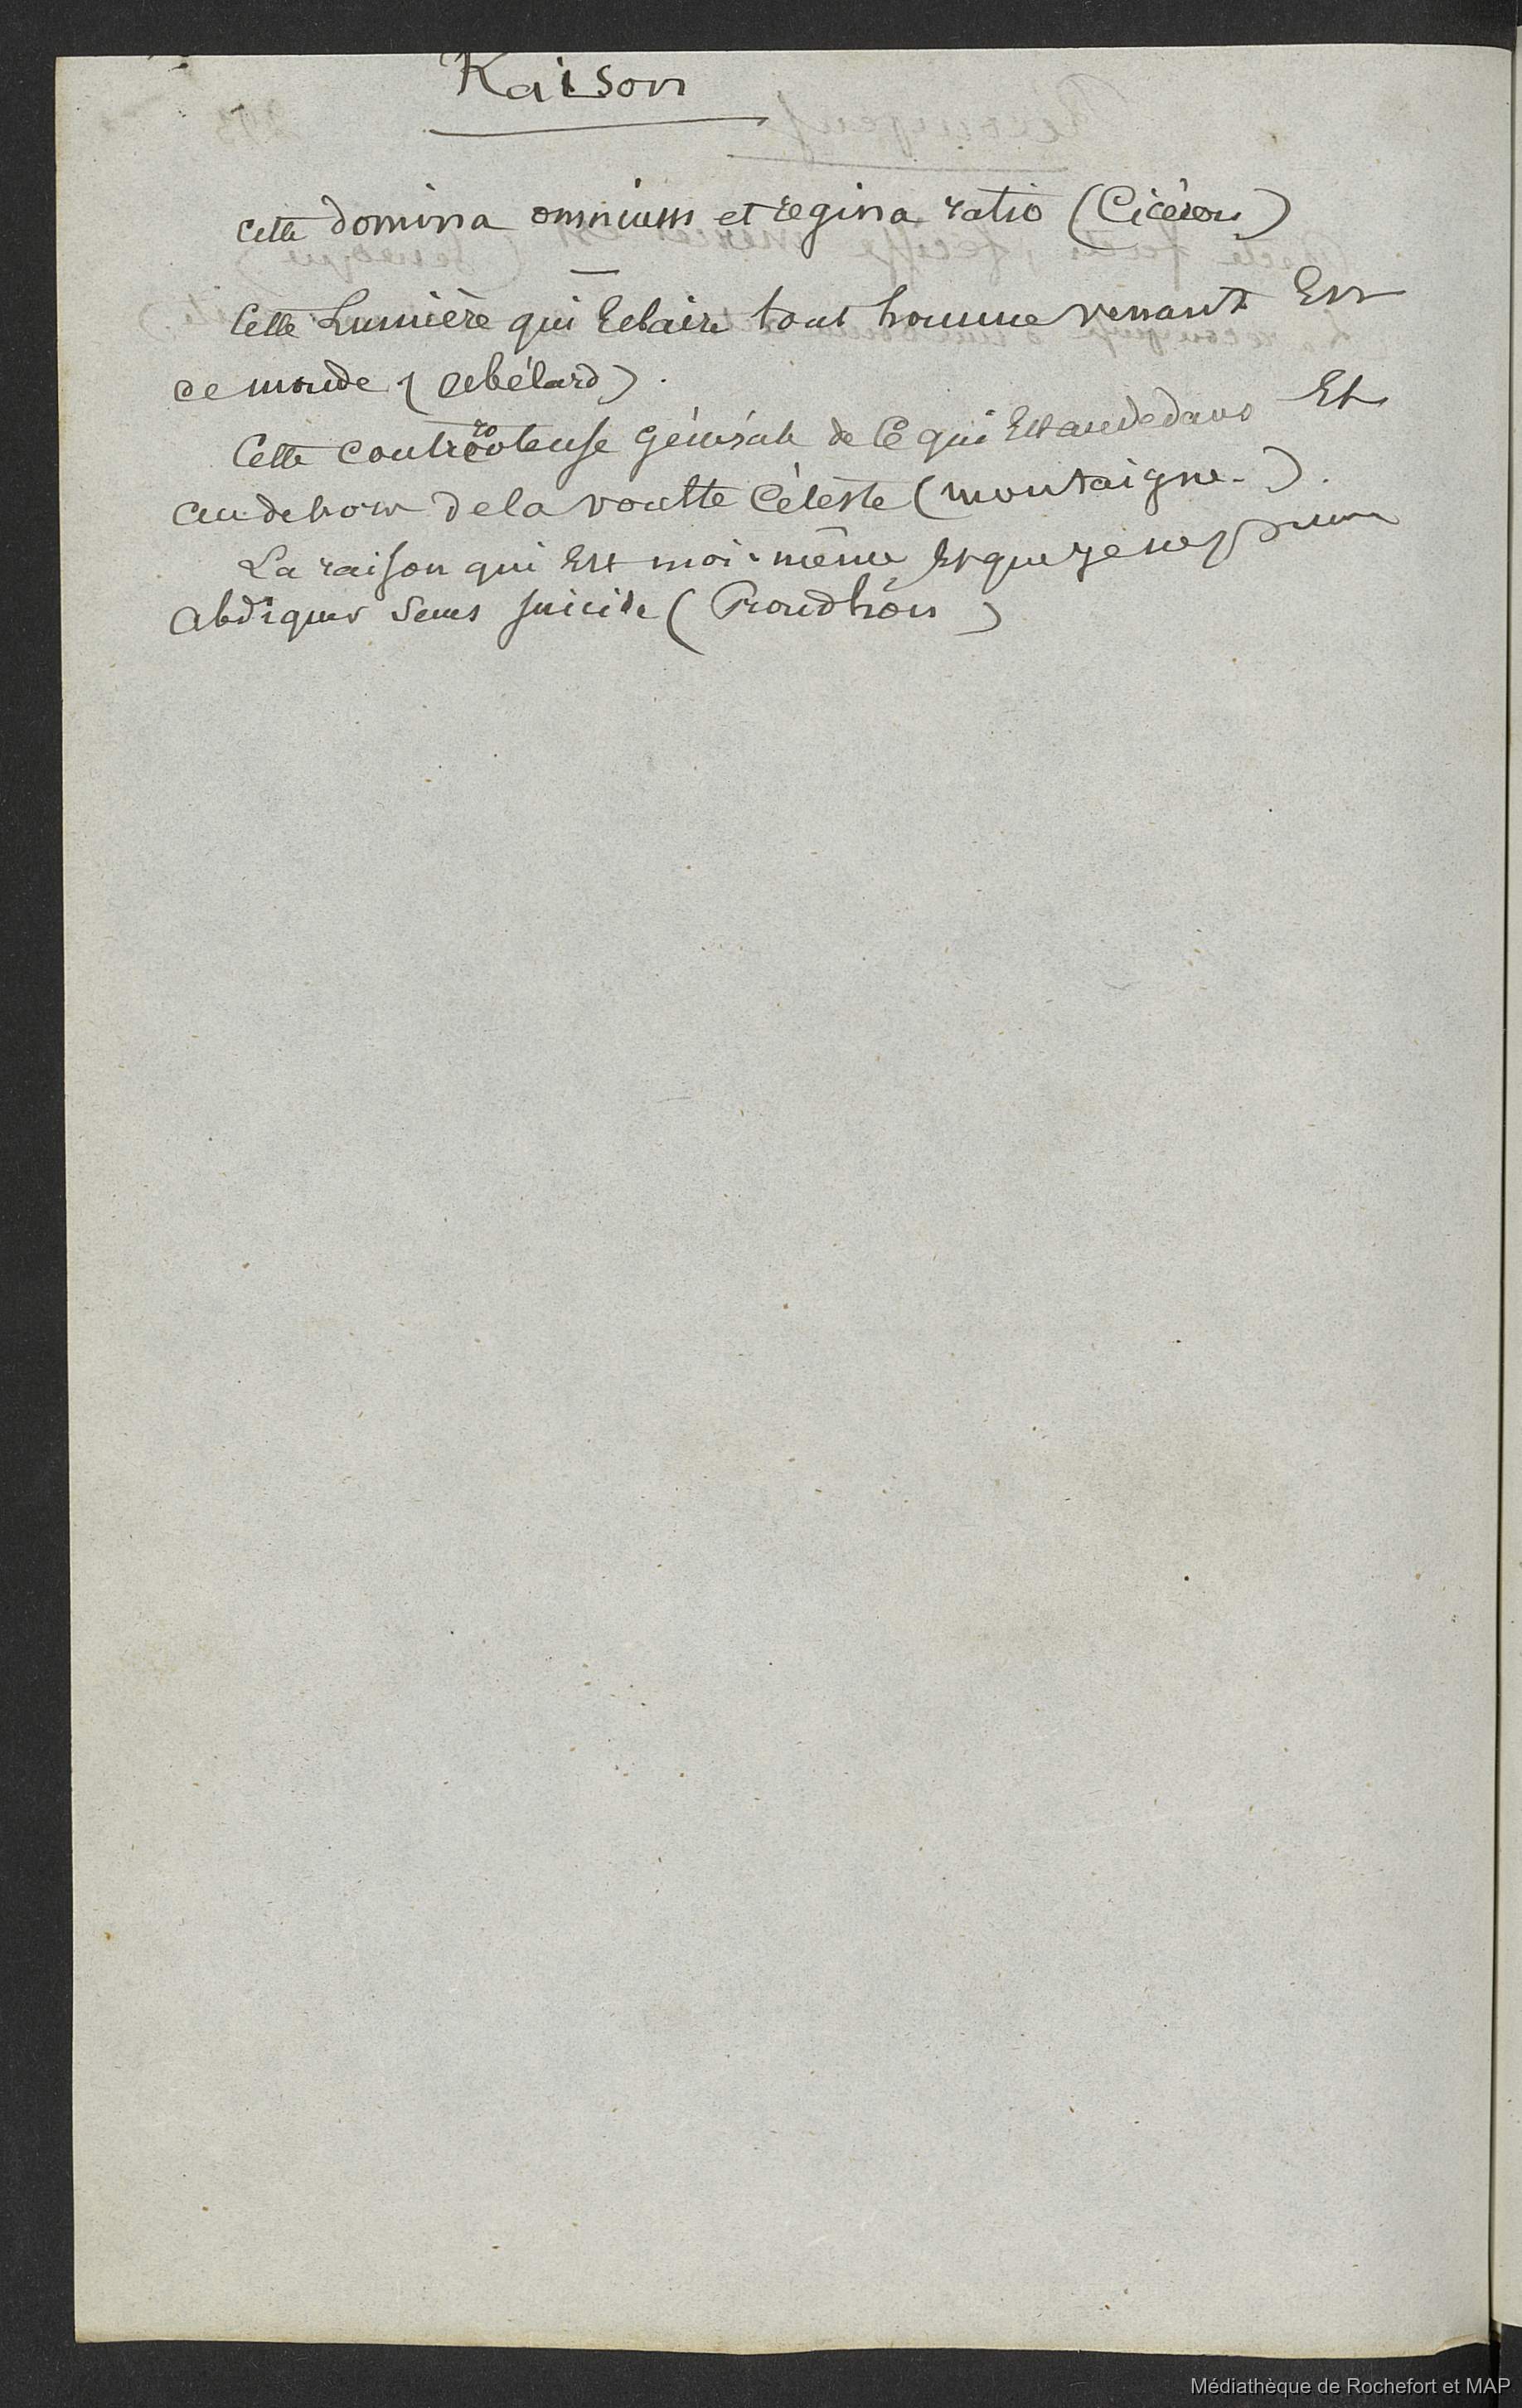 Raison
Cette domina omnium et regina ratio (Cicéron)
Cette Lumière qui Eclaire tout homme venant En
ce monde (Abélard).
Cette controoleuse générale de Ce qui Est au dedans Et
au dehors de la voulte Céleste (montaigne.).
La raison qui Est moi-même Et que je ne puis
abdiquer sans suicide (Proudhon)
Médiathèque de Rochefort et MAP